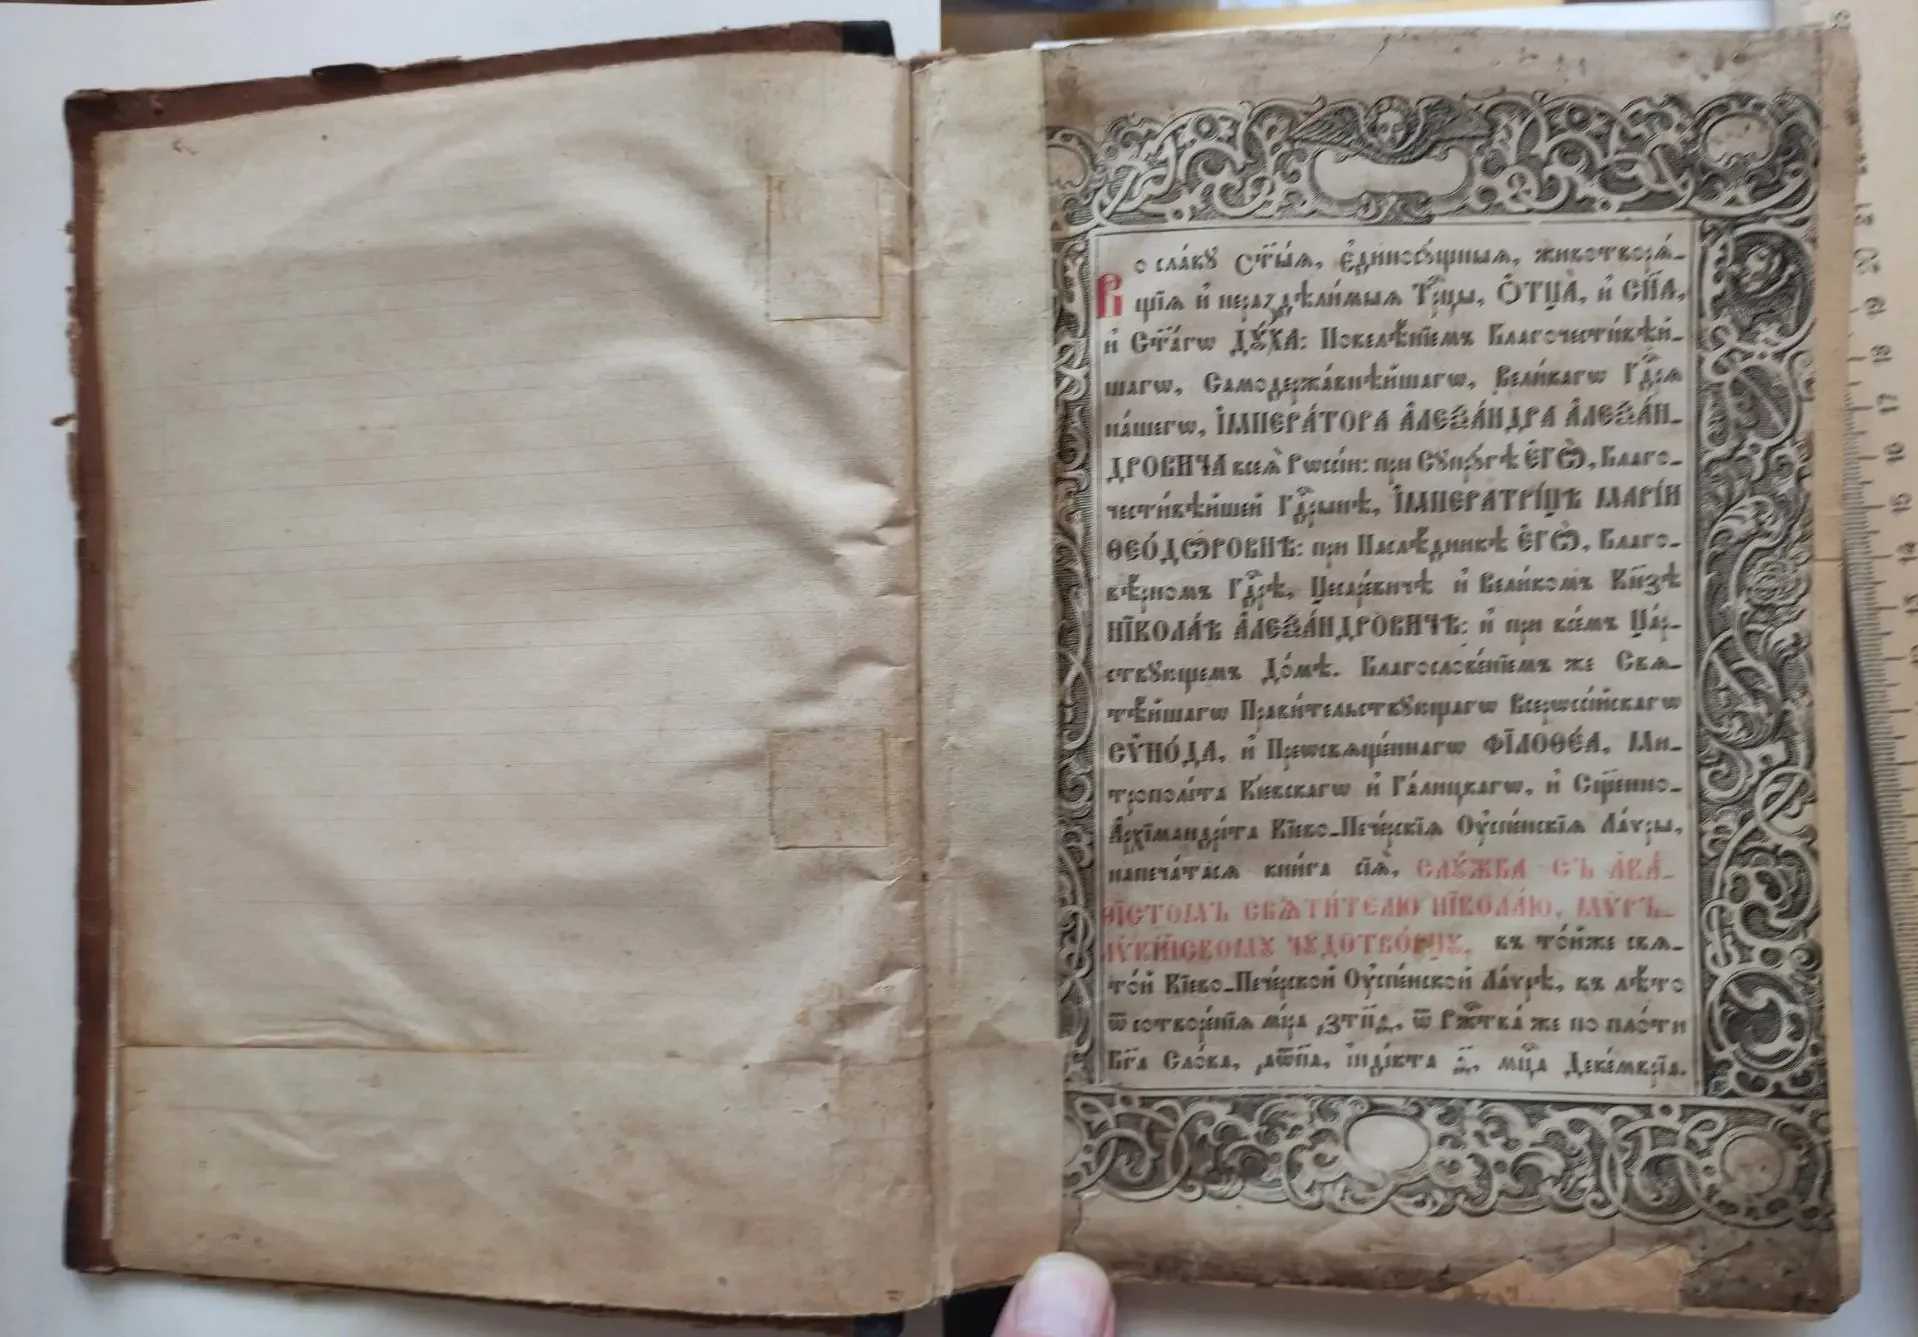 Во сла́вꙋ Ст҃ы́ѧ, є҆диносꙋ́щныѧ, животворѧ́-
щїѧ и҆ нераздѣли́мыѧ Трⷪ҇цы, Ѻ҆ТЦА̀, и҆ СН҃А,
и҆ Ст҃а́гѡ ДꙊ́ХА: Повелѣ́нїемъ Благочести́вѣй-
шагѡ, Самодержа́внѣйшагѡ, Вели́кагѡ Гдⷭ҇рѧ
на́шегѡ, І҆МПЕРА́ТОРА А҆ЛЕѮА́НДРА А҆ЛЕѮА́Н-
ДРОВИЧА всеѧ̀ Рѡссі́и: при Сꙋпрꙋ́гѣ Є҆ГѠ̀, Благо-
чести́вѣйшей Гдⷭ҇рынѣ, І҆МПЕРАТРІ́ЦѢ МАРІ́И
ѲЕО́ДѠРОВНѢ: при Наслѣ́дникѣ Є҆ГѠ̀, Благо-
вѣ́рномъ Гдⷭ҇рѣ, Цесаре́вичѣ и҆ Вели́комъ Кн҃зѣ
НЇКОЛА́Ѣ А҆ЛЕѮА́НДРОВИЧѢ: и҆ при все́мъ Ца́р-
ствꙋющемъ До́мѣ. Благослове́нїемъ же Свѧ-
тѣ́йшагѡ Прави́тельствꙋющагѡ Всерѡссі́йскагѡ
СѴ҆НО́ДА, и҆ Преѡсвѧще́ннагѡ ФЇЛОѲЕ́А, Ми-
трополі́та Кі́евскагѡ и҆ Га́лицкагѡ, и҆ Сщ҃е́нно-
А҆рхїмандрі́та Кїево-Пече́рскїѧ Оу҆спе́нскїѧ Ла́ѵры,
напеча́тасѧ кни́га сїѧ̀, СЛꙊ́ЖБА СЪ А҆КА́-
ѲЇСТОМЪ СВѦТИ́ТЕЛЮ НЇКОЛА́Ю, МѴ́РЪ-
ЛѴКІ́ЙСКОМꙊ ЧꙊДОТВО́РЦꙊ, въ то́йже свѧ-
то́й Кїево-Пече́рской Оу҆спе́нской Ла́ѵрѣ, въ лѣ́то
ѿ сотворе́нїѧ мі́ра ҂зтп҃д, ѿ Ржⷭ҇тва́ же по пло́ти
Бг҃а Сло́ва, ҂аѿп҃а, і҆ндікта д҃, мцⷭ҇а Деке́мврїа.